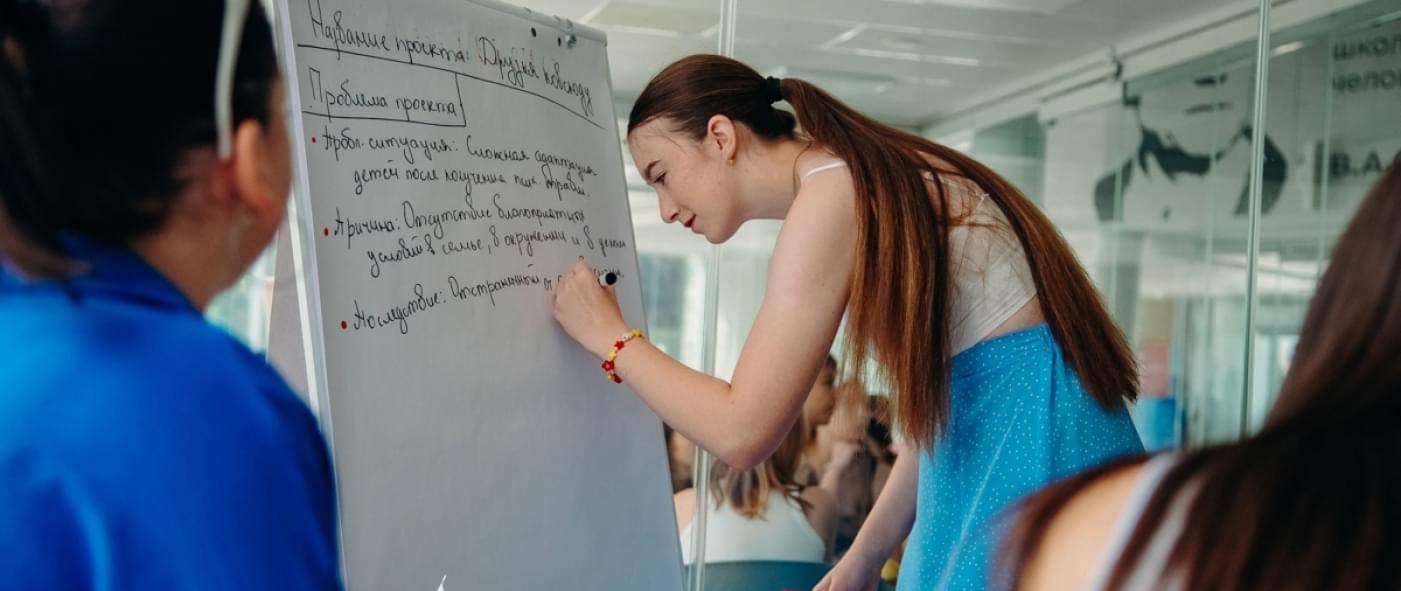 Название проекта: Друзья повсюду
Проблема проекта
• Пробл. ситуация: Сложная адаптация
детей после получения псих. травм.
• Причина: Отсутствие благоприятных
условий в семье, в окружении и в целом
• Последствие: Отстраненный от
школ
челов
В.А.